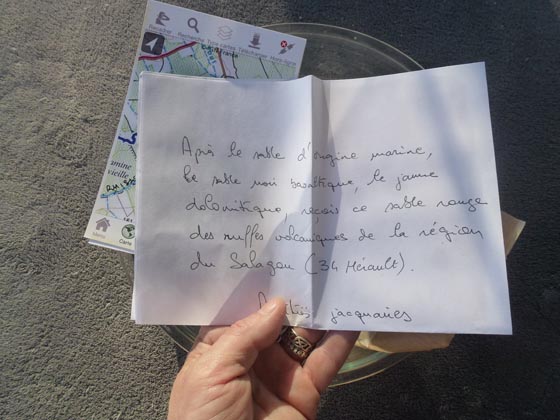 Rechercher
Après le sable d'origine marine,
le sable noir basaltique, le jaune
dolomitique, reçois ce sable rouge
des ruffes volcaniques de la région
du Salagou (34 Hérault).
jacquaires
amine
vieille
Menu
Carte